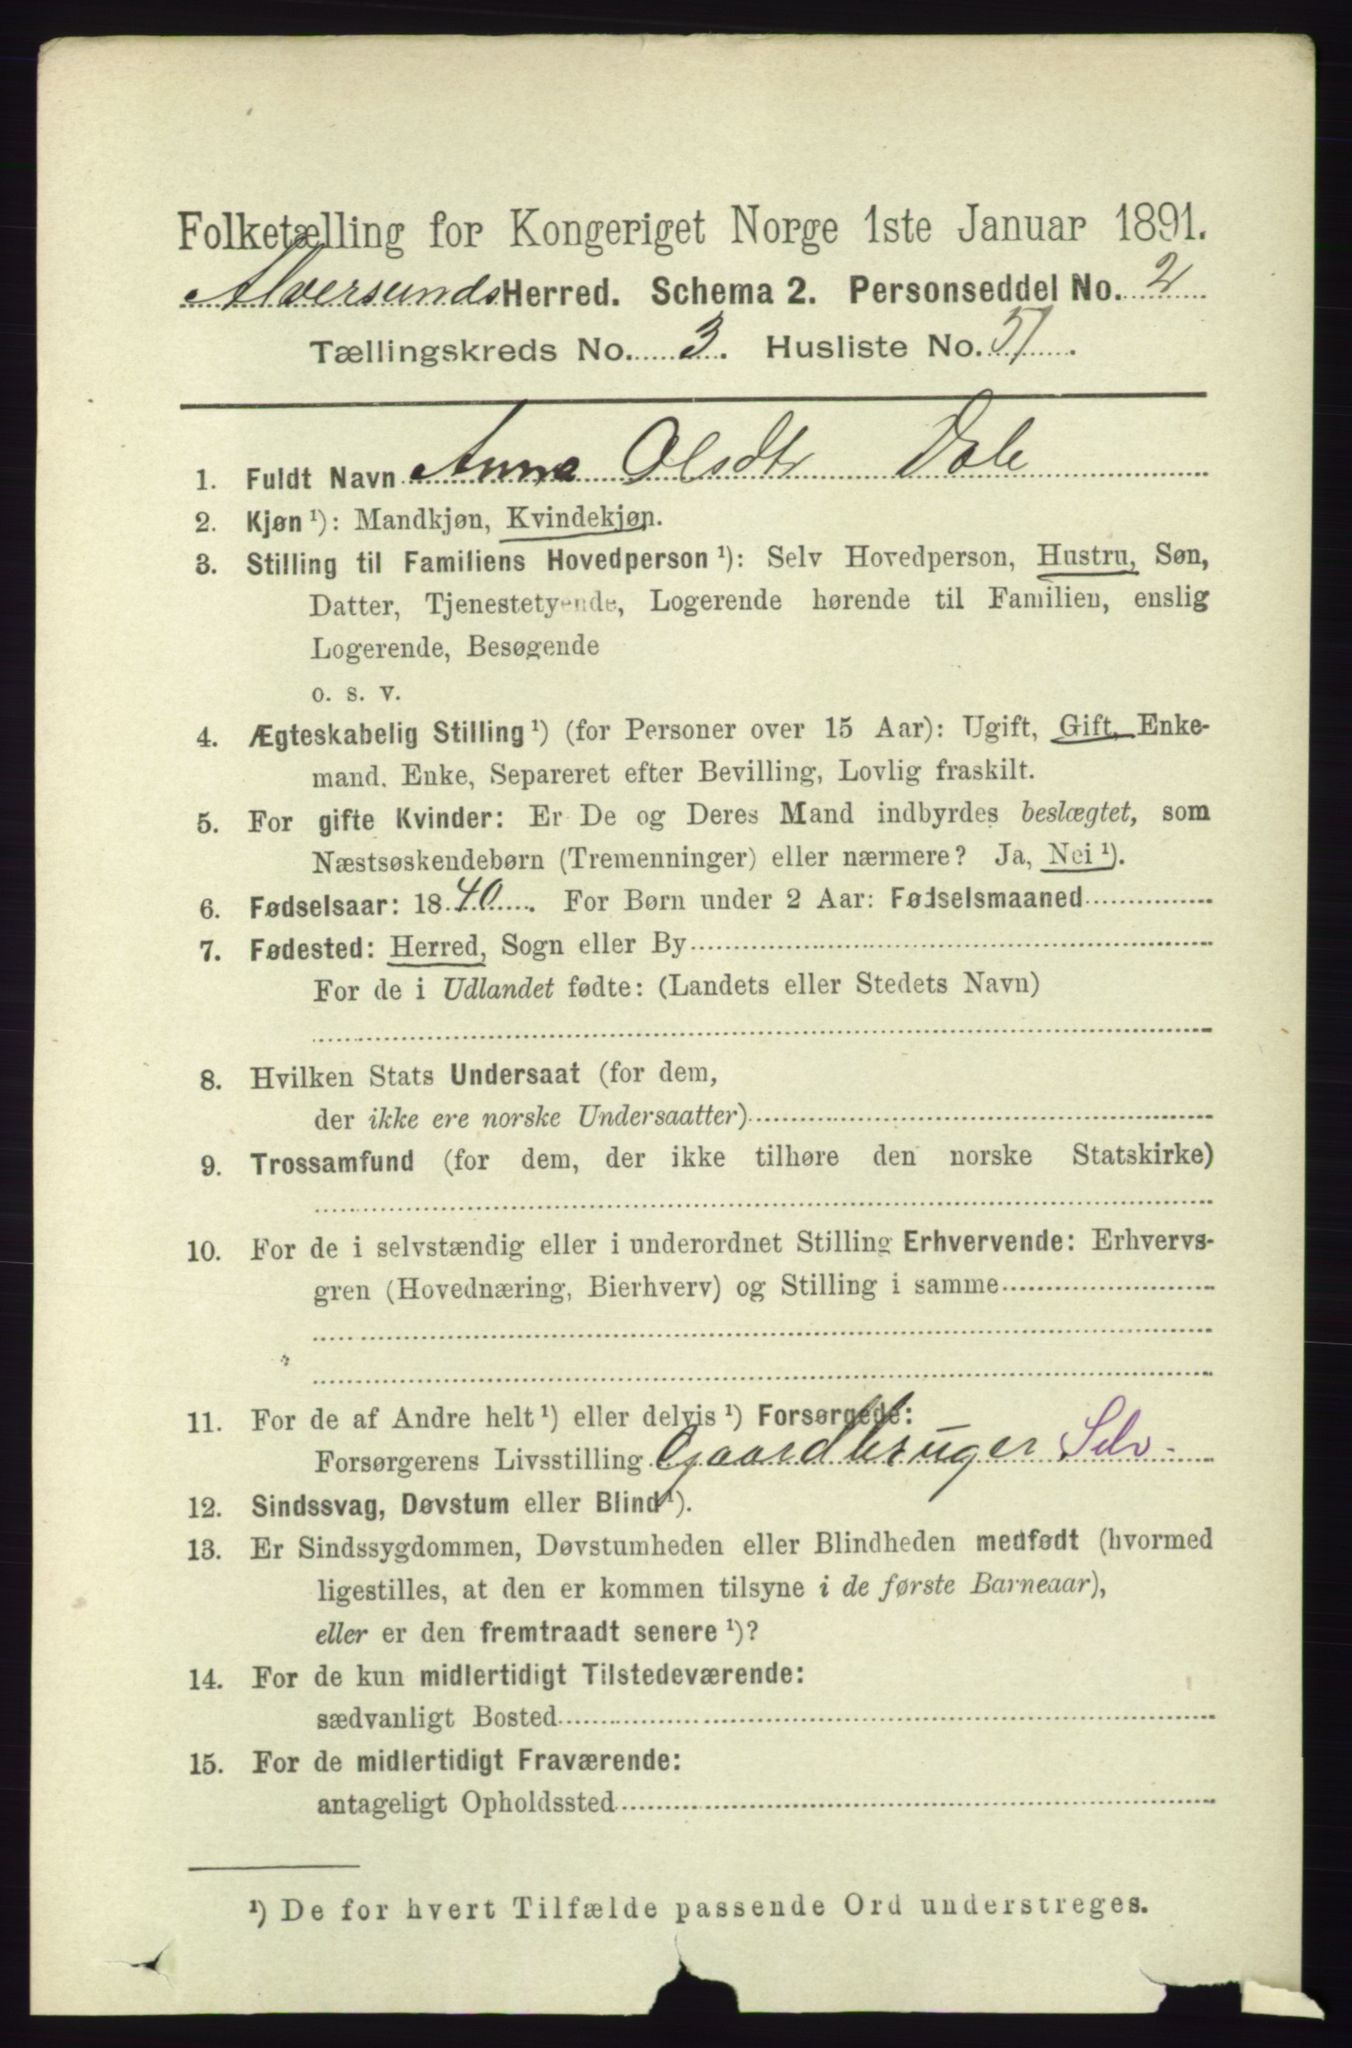 Folketælling for Kongeriget Norge 1ste Januar 1891.
Alversunds Herred. Schema 2. Personseddel No. 2
Tællingskreds No. 3. Husliste No. 51.
1. Fuldt Navn Anna Olsdtr Dale
2. Kjøn ¹): Mandkjøn, Kvindekjøn.
3. Stilling til Familiens Hovedperson ¹): Selv Hovedperson, Hustru, Søn,
Datter, Tjenestetyende, Logerende hørende til Familien, enslig
Logerende, Besøgende
o. s. v.
4. Ægteskabelig Stilling ¹) (for Personer over 15 Aar): Ugift, Gift, Enke-
mand, Enke, Separeret efter Bevilling, Lovlig fraskilt.
5. For gifte Kvinder: Er De og Deres Mand indbyrdes beslægtet, som
Næstsøskendebørn (Tremenninger) eller nærmere? Ja, Nei ¹).
6. Fødselsaar: 1840. For Børn under 2 Aar: Fødselsmaaned
7. Fødested: Herred, Sogn eller By
For de i Udlandet fødte: (Landets eller Stedets Navn)
8. Hvilken Stats Undersaat (for dem,
der ikke ere norske Undersaatter)
9. Trossamfund (for dem, der ikke tilhøre den norske Statskirke)
10. For de i selvstændig eller i underordnet Stilling Erhvervende: Erhvervs-
gren (Hovednæring, Bierhverv) og Stilling i samme
11. For de af Andre helt ¹) eller delvis ¹) Forsørgede:
Forsørgerens Livsstilling Gaardbruger Selv.
12. Sindssvag, Døvstum eller Blind ¹).
13. Er Sindssygdommen, Døvstumheden eller Blindheden medfødt (hvormed
ligestilles, at den er kommen tilsyne i de første Barneaar),
eller er den fremtraadt senere ¹)?
14. For de kun midlertidigt Tilstedeværende:
sædvanligt Bosted
15. For de midlertidigt Fraværende:
antageligt Opholdssted
¹) De for hvert Tilfælde passende Ord understreges.